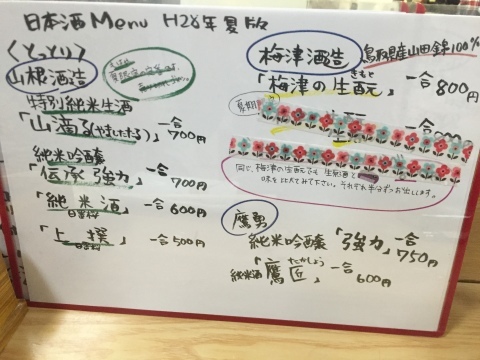 日本酒 Menu H28年 夏版
〈とっとり〉
山根酒造
特別純米生酒
「山滴る(やましたたる)」 一合 700円
純米吟醸
「伝承 強力」 一合 700円
「純米酒」 一合 600円
日置桜
「上撰」 一合 500円
日置桜
梅津酒造 鳥取県産山田錦100%
「梅津の生酛」 一合 800円
きもと
夏期
同じ、梅津の生酛でも 生原酒で
味を比べてみて下さい。それぞれ半合ずつお出しします。
鷹勇
純米吟醸「強力」 一合 750円
たかしょう
純米酒「鷹匠」 一合 600円